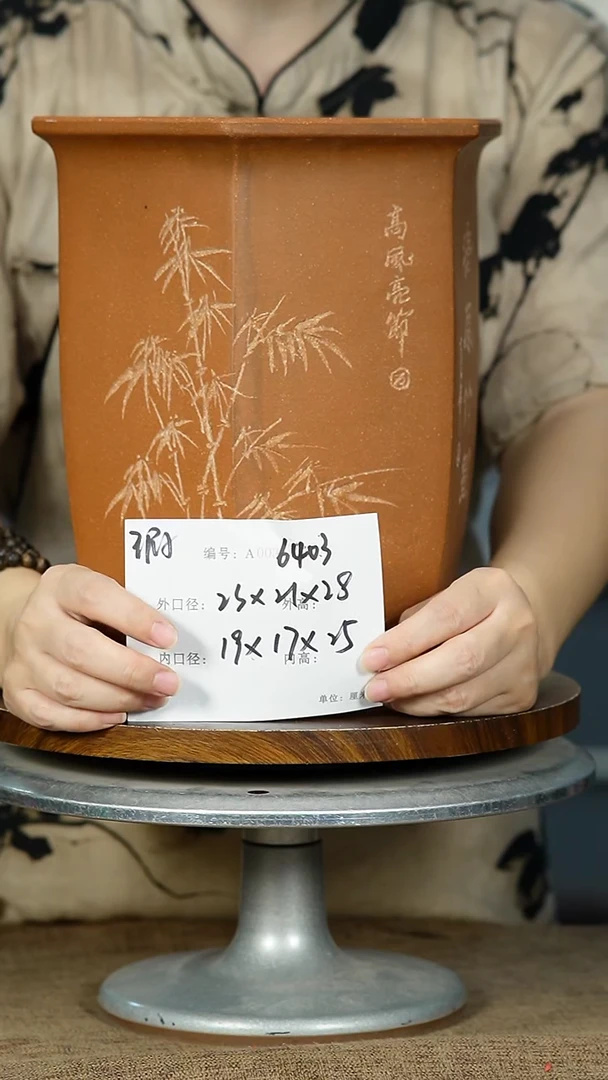 高风亮节
编号：A 6403
外口径：23×21×28 外高：
内口径：19×17×25 内高：
单位：厘米